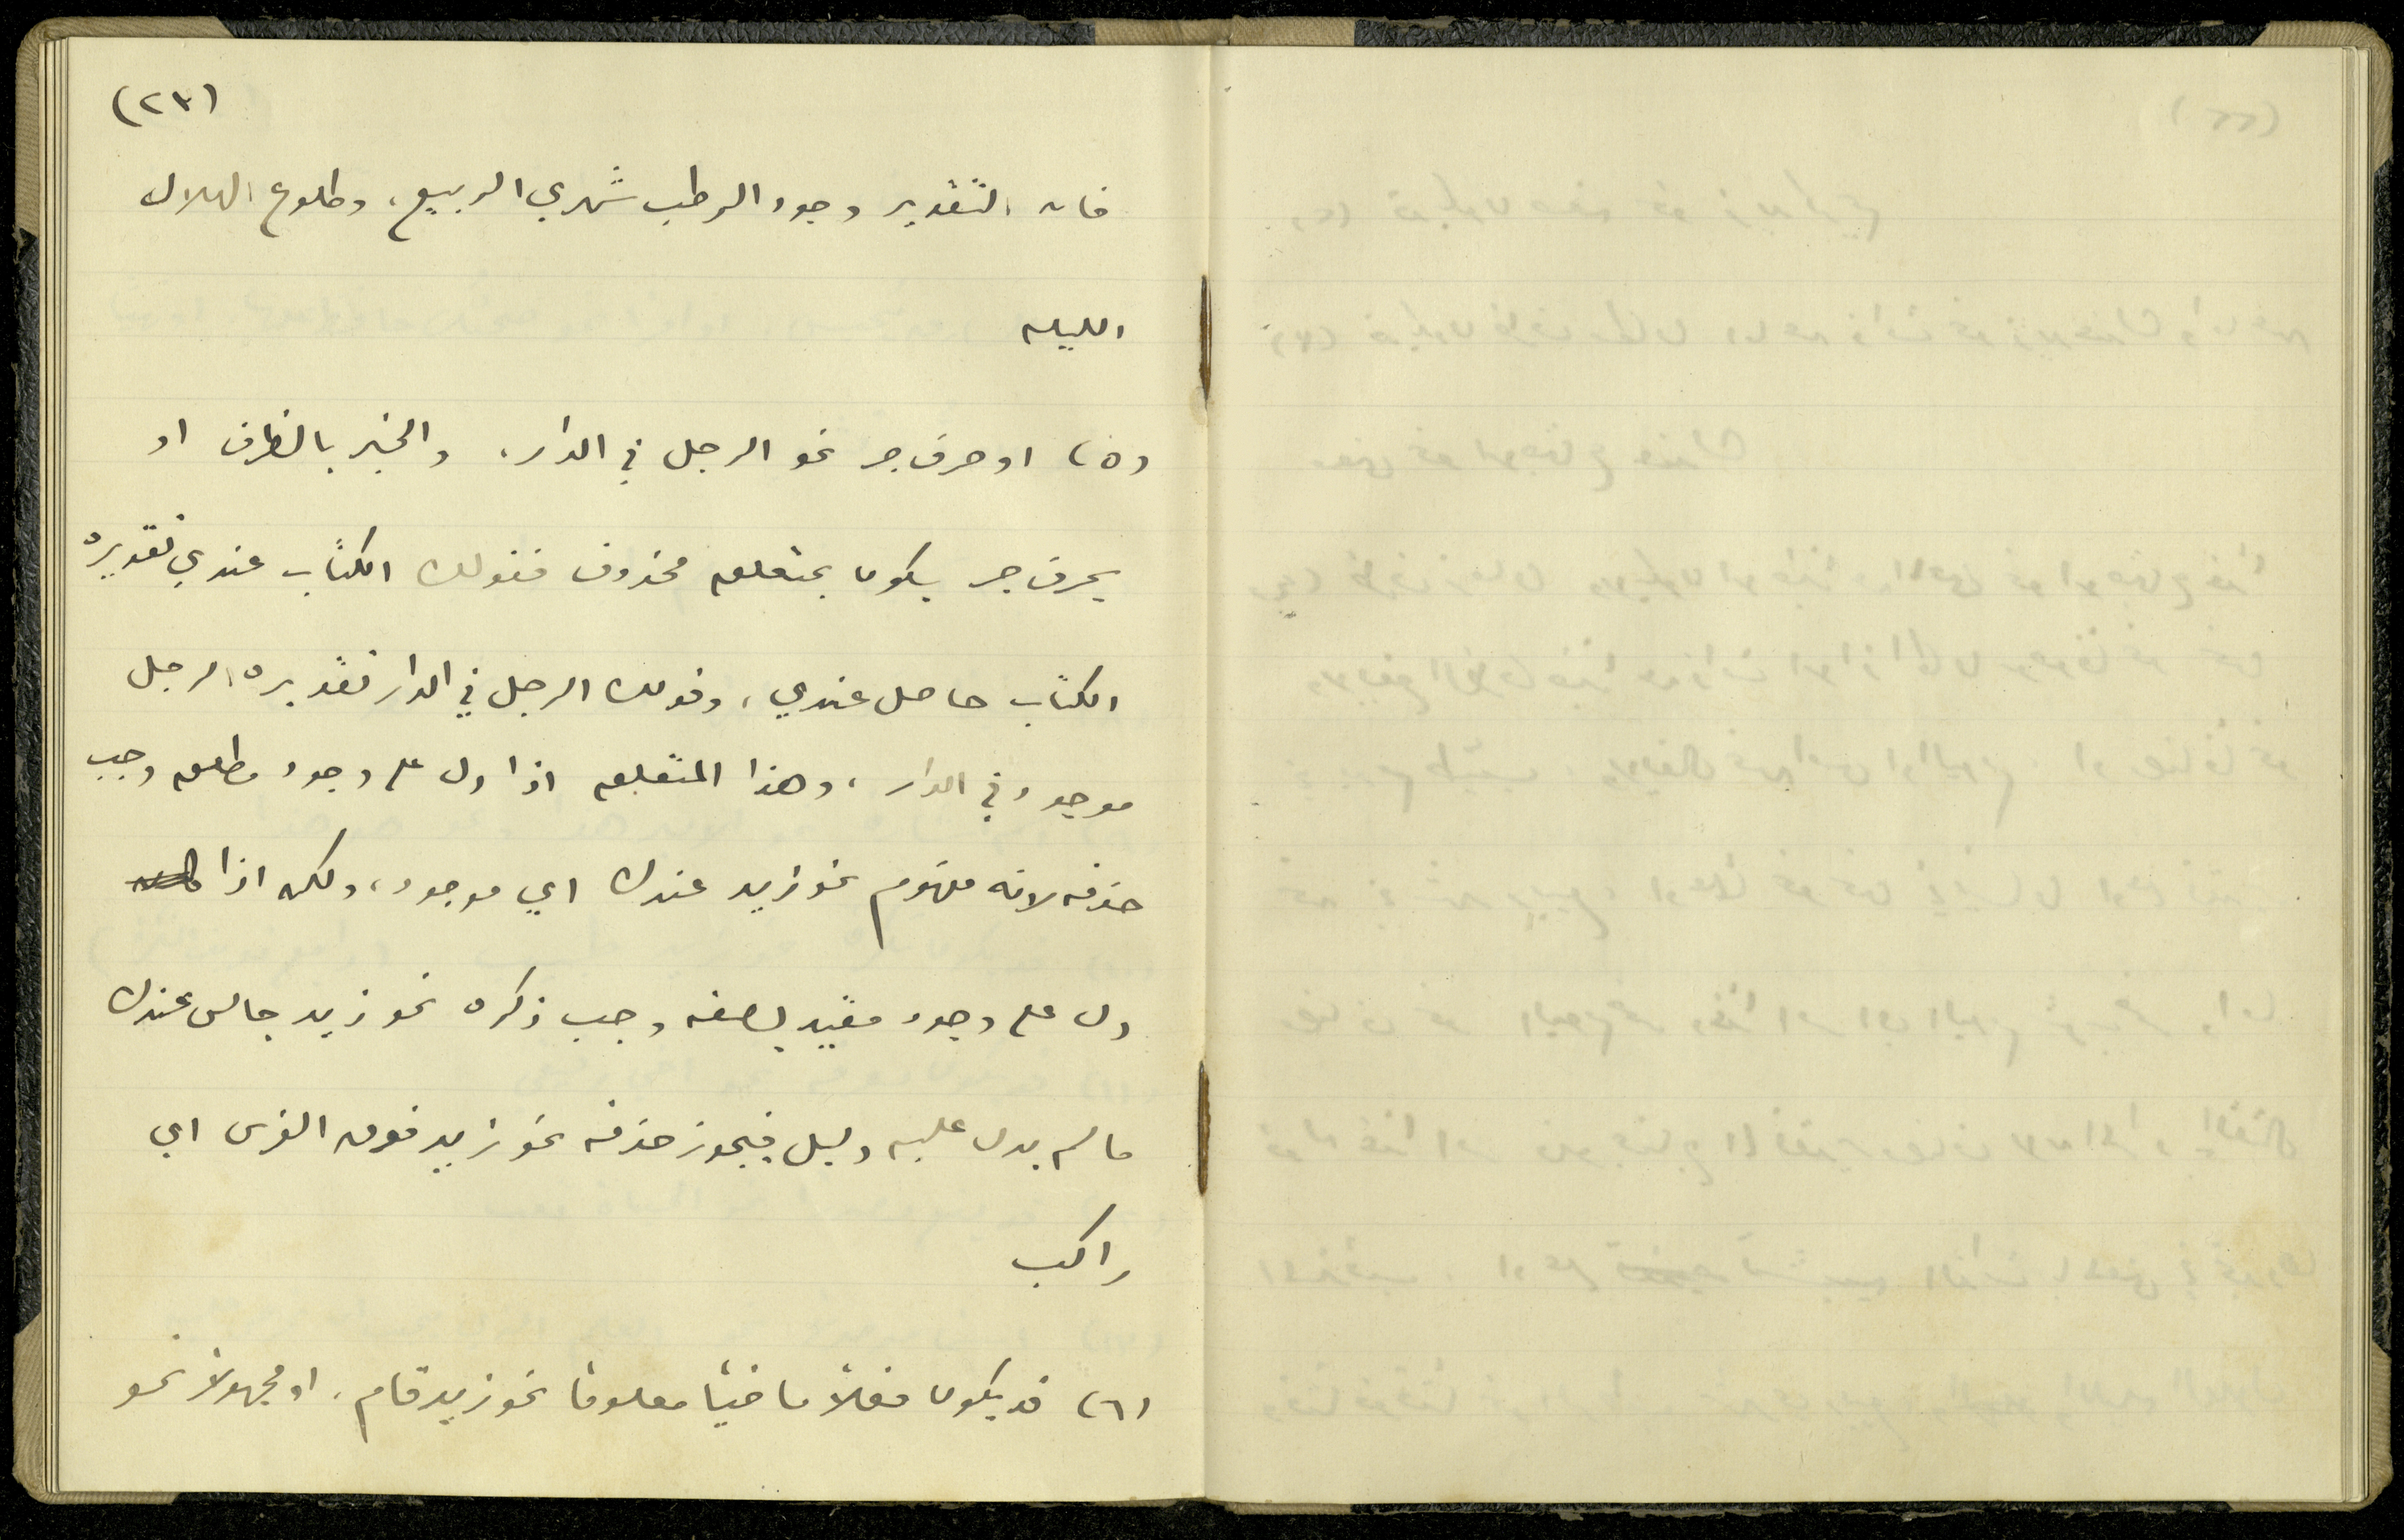 (٢٣)
فان التقدير وجود الرطب شهري الربيع، وطلوع الهلال
الليله
(٥) او حرف جر نحو الرجل في الدار. والخبر بالظرف او
بحرف جر يكون بمتعلق محذوف فقولك الكتاب عندي تقديره
الكتاب حاصل عندي، وقولك الرجل في الدار تقديره الرجل
موجود في الدار، وهذا المتعلق اذا دل على وجود مطلق وجب
حذفه لانه مفهوم نحو زيد عندك اي موجود، ولكن اذا
دل على وجود مقيد بصفه وجب ذكره نحو زيد جالس عندك
ما لم يدل عليه دليل فيجوز حذفه نحو زيد فوق الفرس اي
راكب
(٦) قد يكون فعلاً ماضياً معلوماً نحو زيد قام، او مجهولاً نحو